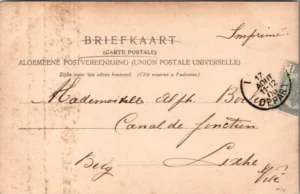 Imprimé
BRIEFKAART
(CARTE POSTALE)
ALGEMEENE POSTVEREENIGING (UNION POSTALE UNIVERSELLE)
Zijde voor het adres bestemd. (Côté réservé à l'adresse.)
Mademoiselle Alph.
Canal de jonction
Lixhe
Visé
Belg
17
AOUT